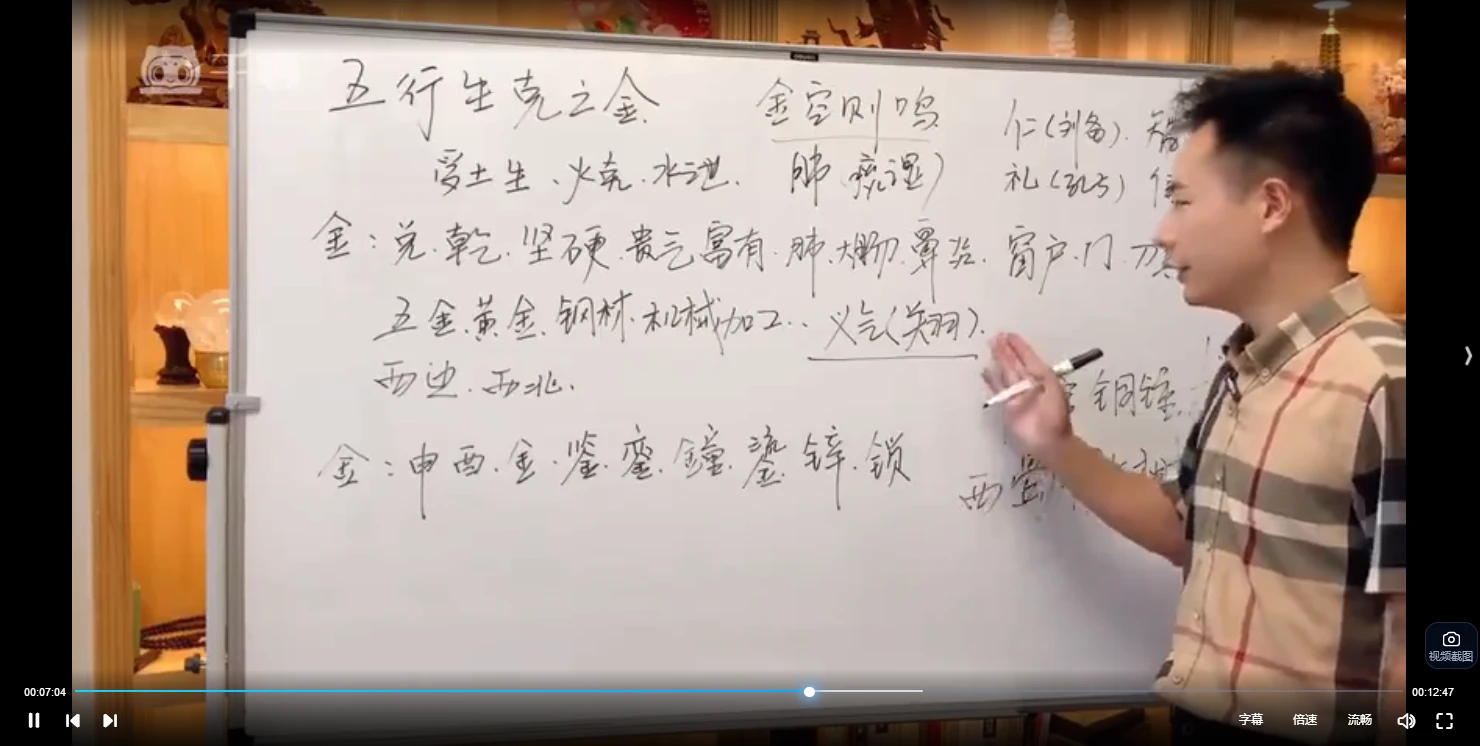 五行生克之金
金空则鸣
仁(刘备).
受土生、火克.水泄.
肺
湿)
礼(孔
金:兑.乾.坚硬.贵气富有.肺.大肠.鼻炎.窗户.门.刀
五金.黄金.钢材.机械加工..义气(关羽).
西边.西北.
铜锤
金:申酉.金.鉴.銮.鐘.鎏.锌.锁
西
视频截图
00:07:04
00:12:47
字幕 倍速 流畅